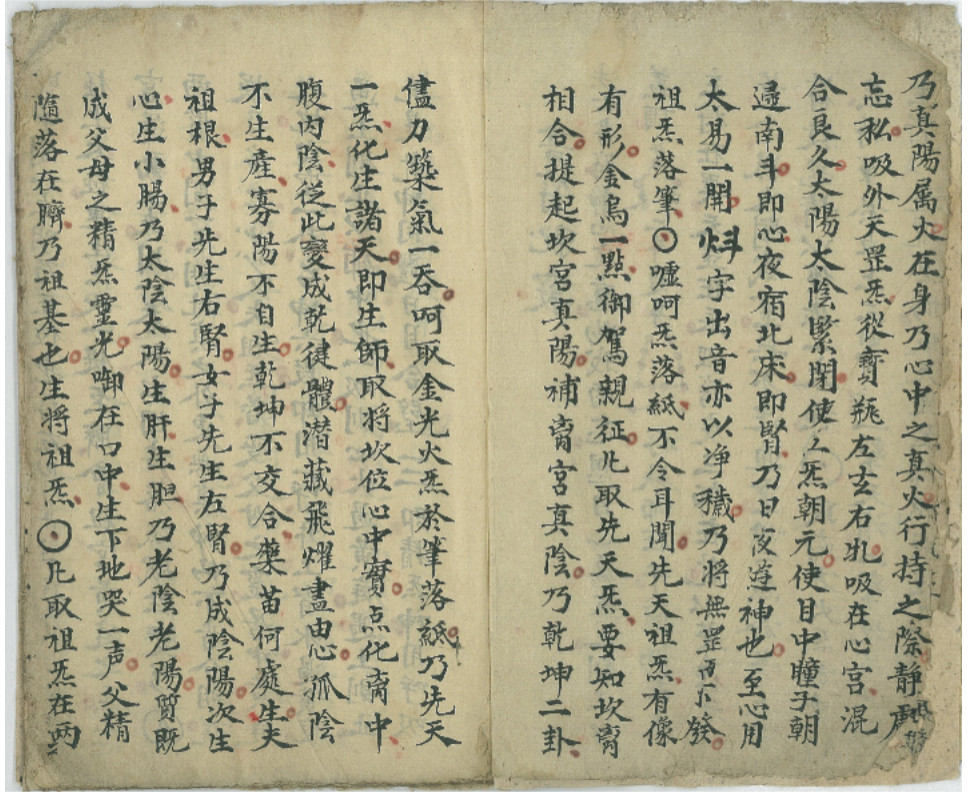 乃真陽属火在身乃心中之真火行持之際靜慮
忘私吸外天罡炁從寶瓶左玄右牝吸在心宫混
合良久太陽太陰緊閉使二炁朝元使目中瞳子朝
邉南斗即心夜宿北床即腎乃日夜遊神也至心用
太易一開炓字出音亦以净穢乃將無罡發
祖炁落筆〇嘘呵炁落紙不令耳聞先天祖炁有像
有形金烏一點御駕親征凡取先天炁要知坎离
相合提起坎宫真陽補离宫真陰乃乾坤二卦
儘力築氣一吞呵取金光火炁於筆落紙乃先天
一炁化生諸天即生師取將坎位心中實点化离中
腹内陰從此變成乾健體潜藏飛燿盡由心孤陰
不生產寡陽不自生乾坤不交合藥苗何處生夫
祖根男子先生右腎女子先生左腎乃成陰陽次生
心生小腸乃太陰太陽生肝生胆乃老陰老陽質既
成父母之精炁靈光啣在口中生下地哭一声父精
隨落在臍乃祖基也生將祖炁⊙凡取祖炁在两